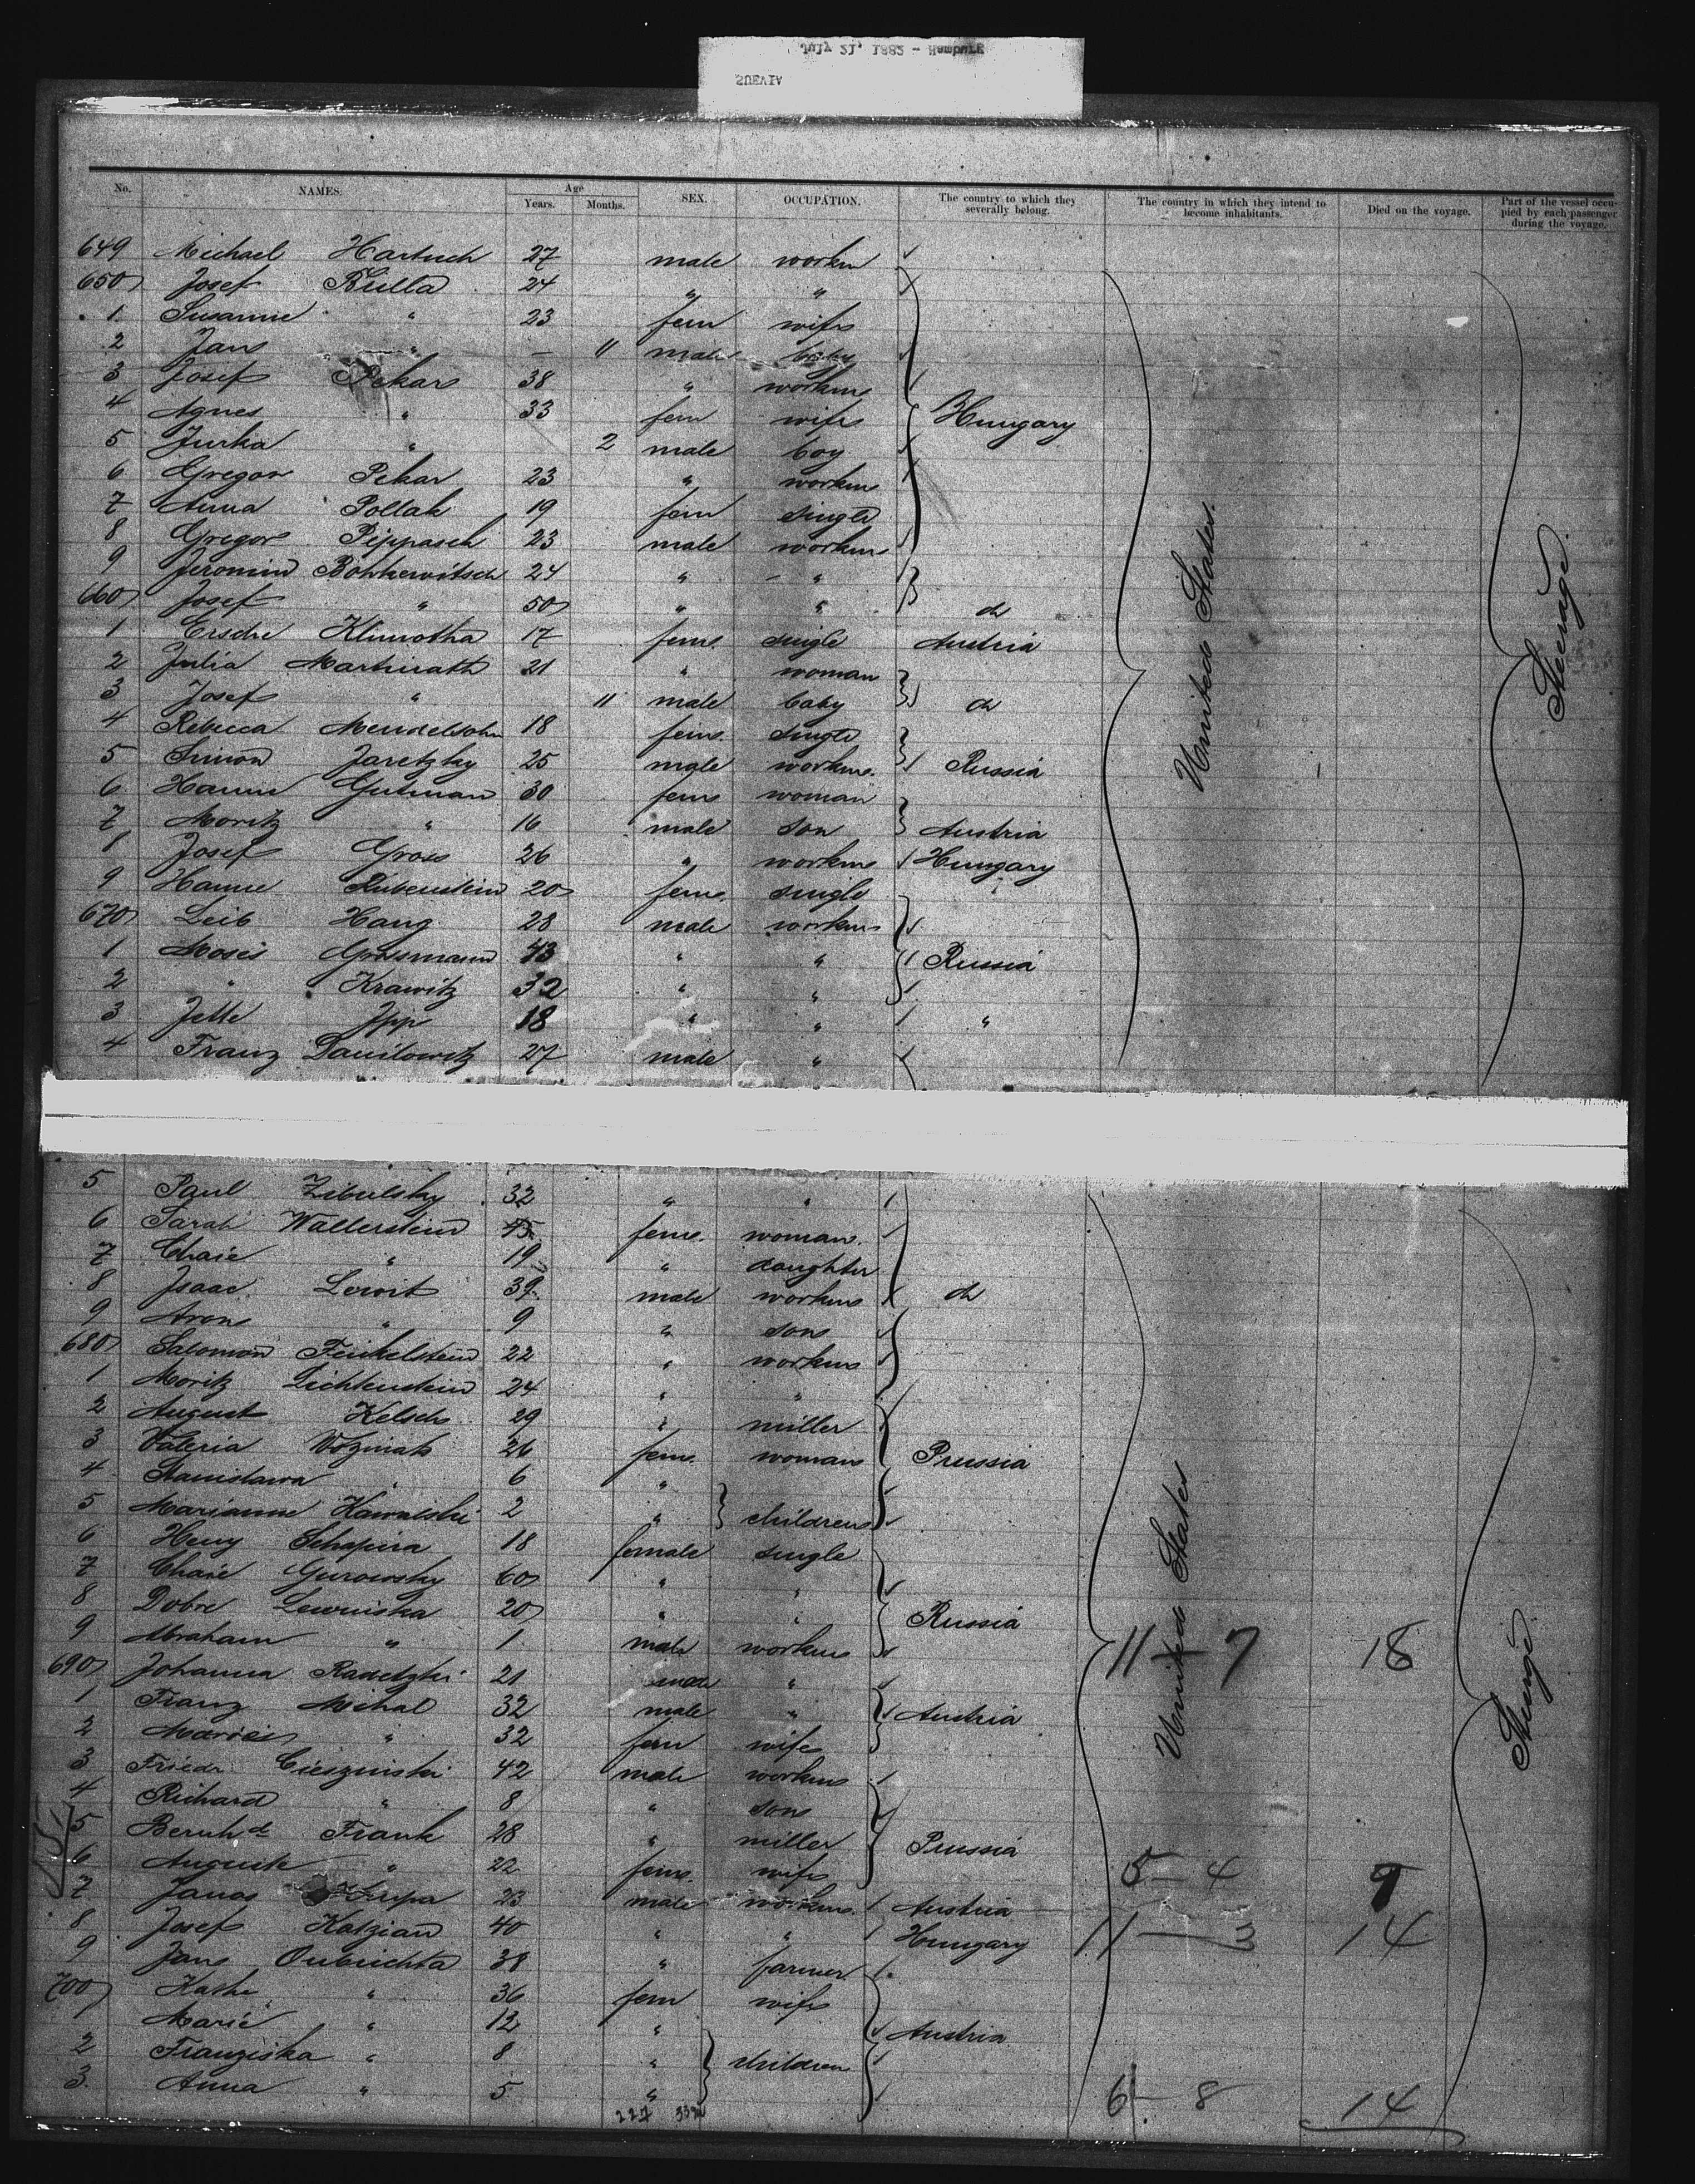 July 21, 1882 - Hamburg
SUEVIA
No. NAMES. Age Years. Months. SEX. OCCUPATION. The country to which they severally belong. The country in which they intend to become inhabitants. Died on the voyage. Part of the vessel occupied by each passenger during the voyage.
649 Michael Hartuch 27 male workm
650 Josef Bulla 24 " "
1 Susanne " 23 fem wife
2 Jan " – 11 male baby
3 Josef Pekar 38 " workm
4 Agnes " 33 fem wife Hungary
5 Jurka " 2 male boy
6 Gregor Pekar 23 " workm
7 Anna Pollak 19 fem single
8 Gregor Pippasch 23 male workm
9 Jeromin Bohkewitsch 24 " "
660 Josef " 50 " " do
1 Klimotha 17 fem. single Austria
2 Julia Martinath 21 " woman
3 Josef " 11 male baby do
4 Rebecca Mendelsohn 18 fem. single
5 Simon Jaretzky 25 male workm. Russia
6 Hanne Gutman 30 fem woman
7 Moritz " 16 male son Austria
8 Josef Gross 26 " workm Hungary
9 Hanne Rubenstein 20 fem. single
670 Leib Hang 28 male workm
1 Moses Grossmann 43 " " Russia
2 " Krawitz 32 " "
3 Jette 18 " " "
4 Franz Danilowitz 27 male "
United States.
Steerage.
5 Paul Zibulsky 32 " "
6 Sarah Wallerstein 45 fem. woman.
7 Chaie " 19 " daughter
8 Isaac Lewit 39 male workm do
9 Aron " 9 " son
680 Salomon Finkelstein 22 " workm
1 Moritz Lichtenstein 24 " "
2 August Kelsch 29 " miller
3 Valeria Wozniak 26 fem. woman Prussia
4 Stanislawa " 6 "
5 Marianne Kawalski 2 " children
6 Heny Schapira 18 female single
7 Chaie Gurowsky 60 " "
8 Dobre Lewniska 20 " " Russia
9 Abraham " 1 male workm 11 – 7 18
690 Johanna Radetzki 21 "
1 Franz Michal 32 male " Austria
2 " 32 fem wife
3 Friedr. Cieszinski 42 male workm
4 Richard " 8 " son
5 Bernhd. Frank 28 " miller Prussia
6 Auguste " 22 fem. wife 5 – 4 9
7 Janos 23 male workm. Austria
8 Josef Katzian 40 " " Hungary 11 – 3 14
9 Jan Onbrichta 38 " farmer
700 Kathe " 36 fem wife
1 Marie " 12 " Austria
2 Franziska " 8 " children
3. Anna " 5 " 6 – 8 14
United States
Steerage